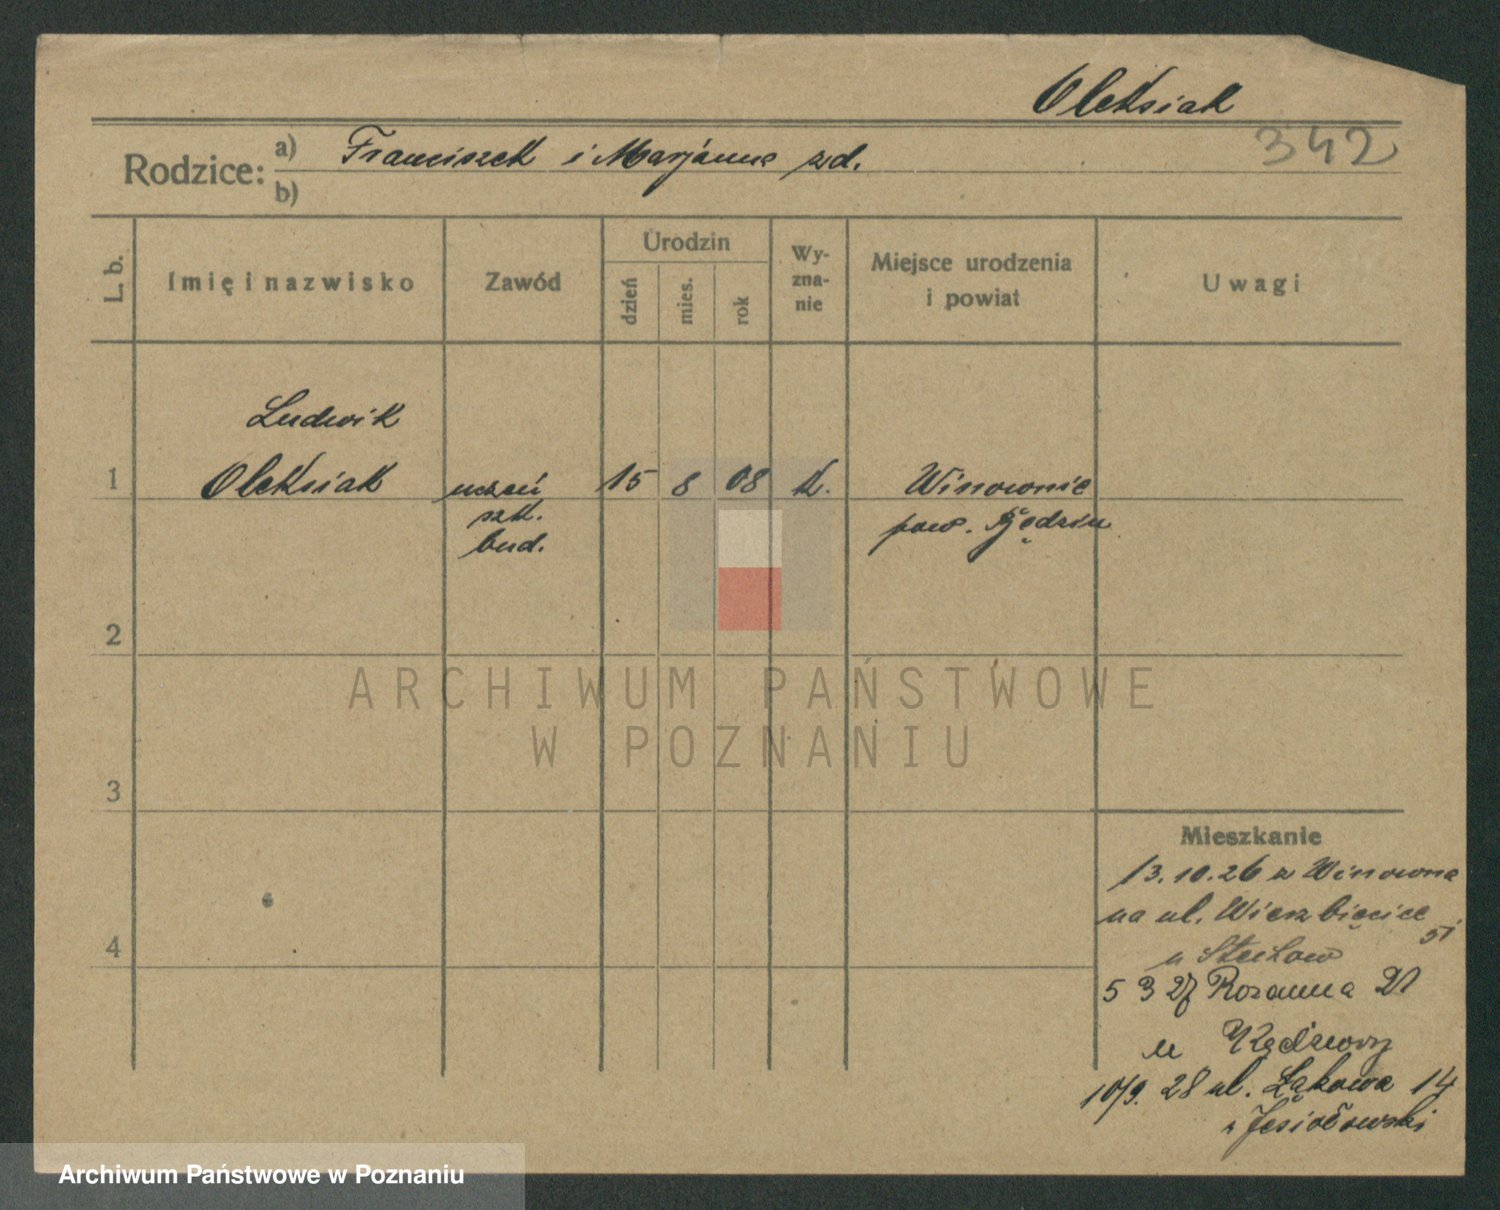 Oleksiak
342
Rodzice: a) Franciszek i Marjanna zd.
b)
L. b.
Imię i nazwisko
Zawód
Urodzin
dzień
mies.
rok
Wy-
zna-
nie
Miejsce urodzenia
i powiat
Uwagi
Ludwik
1 Oleksiak uczeń 15 8 08 k. Winownie
szk. pow. Będzin
bud.
2
3
4
ARCHIWUM PAŃSTWOWE
W POZNANIU
Mieszkanie
13.10.26 z Winowna
na ul. Wierzbięcice 51
u
5 3 27 Rozanna 21
u
10/9. 28 ul. Łąkowa 14
Jesiołowski
Archiwum Państwowe w Poznaniu